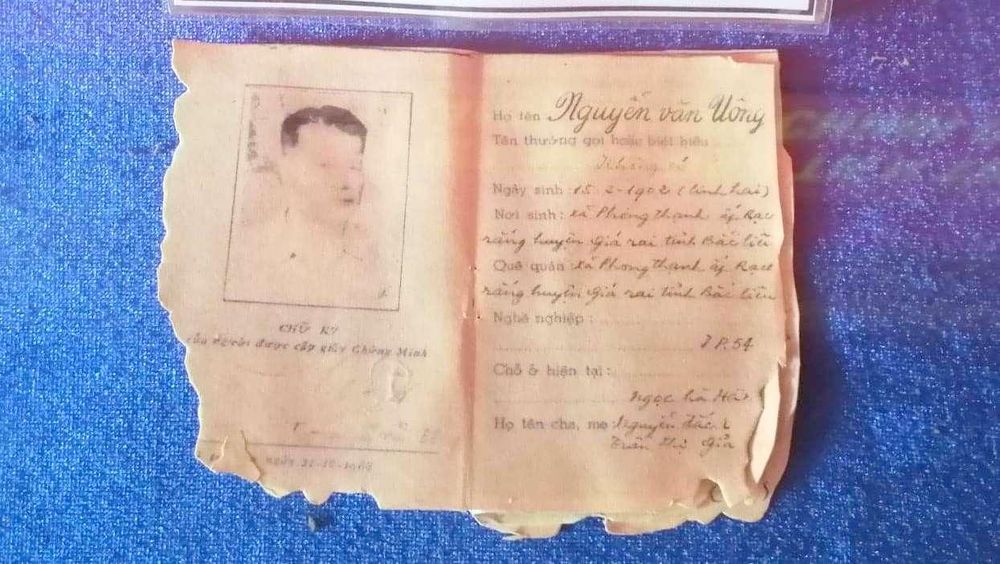 CHỮ KÝ
của người được cấp giấy Chứng Minh
ngày 31-10-196
Họ tên Nguyễn văn Uông
Tên thường gọi hoặc biệt hiệu
Không có
Ngày sinh 15-2-1902 (
Nơi sinh: xã Phong thanh ấp Rạch
rắng huyện Giá rai tỉnh Bạc liêu
Quê quán xã Phong thanh ấp Rạch
rắng huyện Giá rai tỉnh Bạc liêu
Nghề nghiệp:
P.54
Chỗ ở hiện tại:
Ngọc hà Hà
Họ tên cha, mẹ Nguyễn
Trần thị Giả